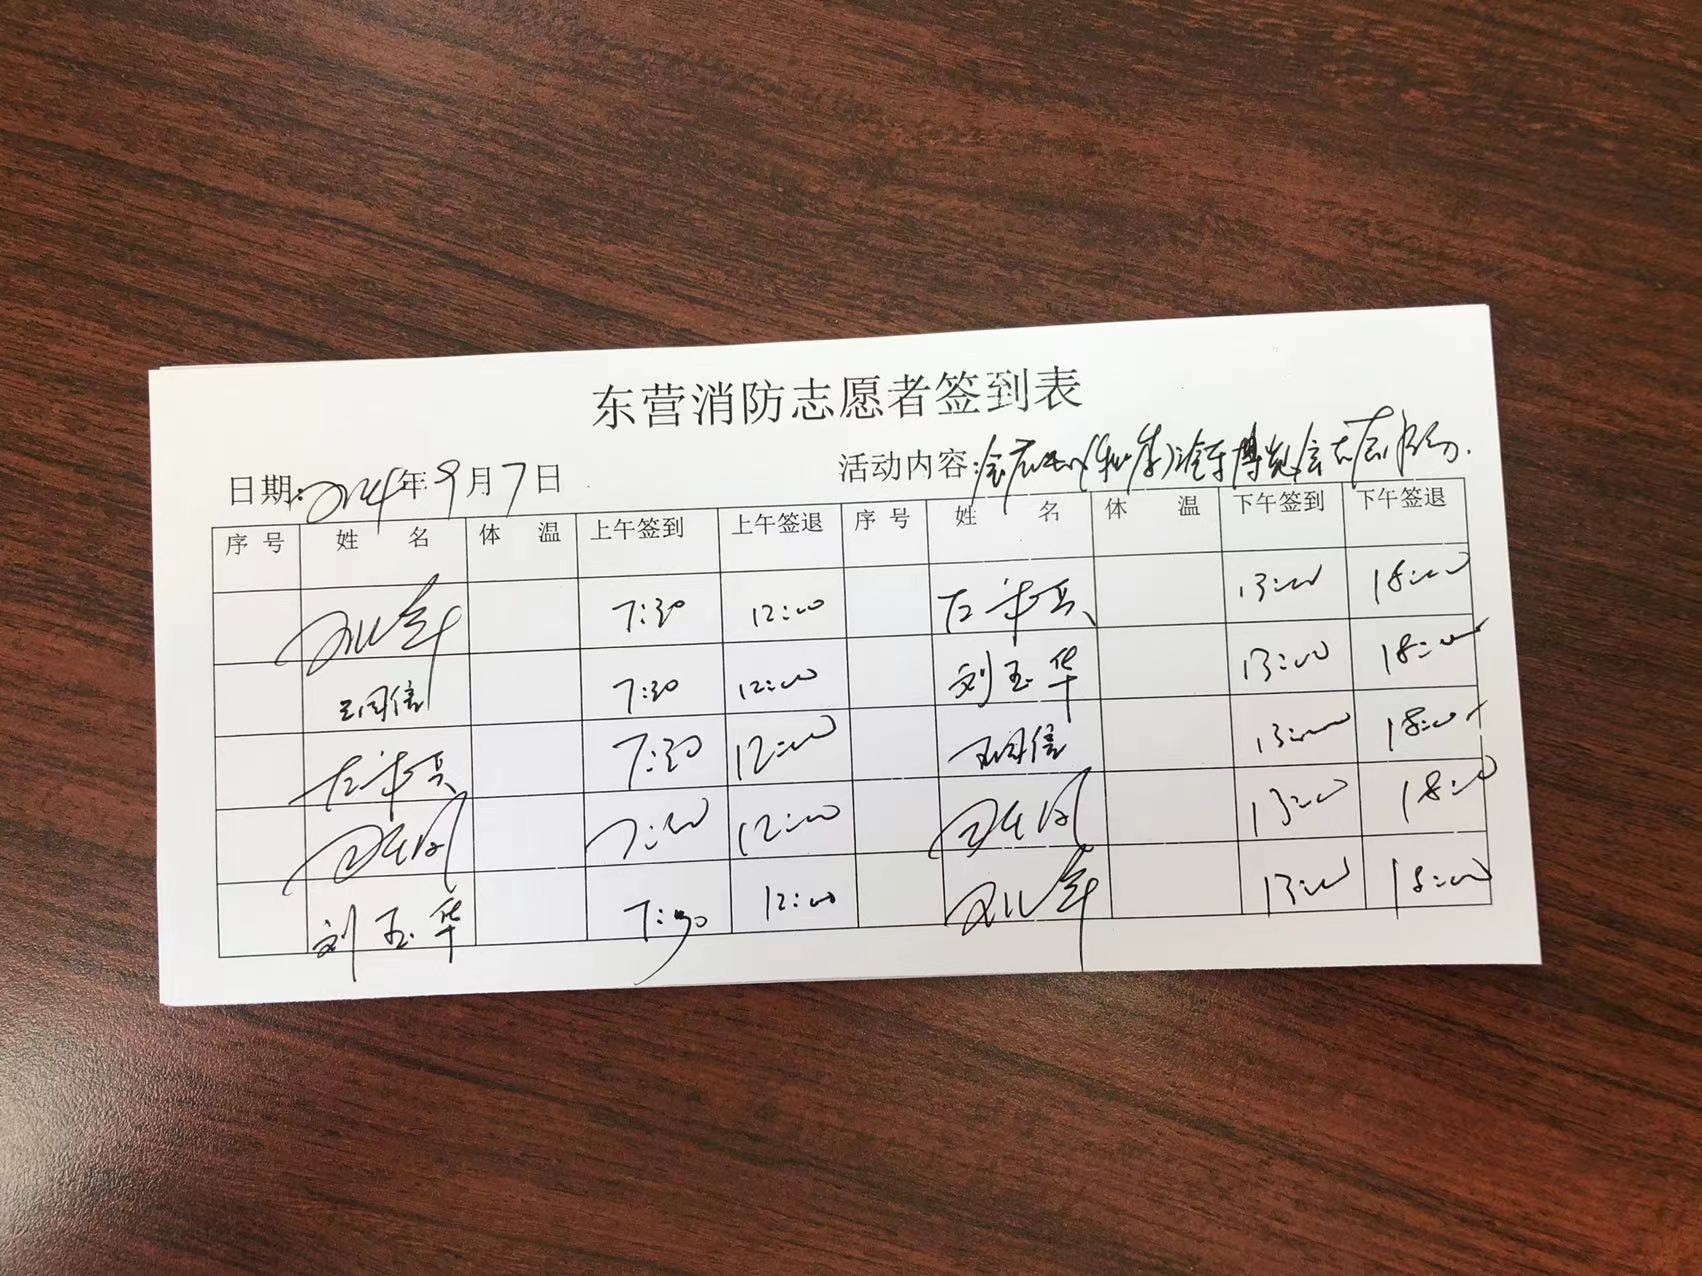 东营消防志愿者签到表
日期:2024年9月7日 活动内容:会展中心(秋季)汽车博览会志愿服务.
序号 姓名 体温 上午签到 上午签退 序号 姓名 体温 下午签到 下午签退
7:30 12:00 13:00 18:00
王同信 7:30 12:00 刘玉华 13:00 18:00
7:30 12:00 王同信 13:00 18:00
7:30 12:00 13:00 18:00
刘玉华 7:30 12:00 13:00 18:00